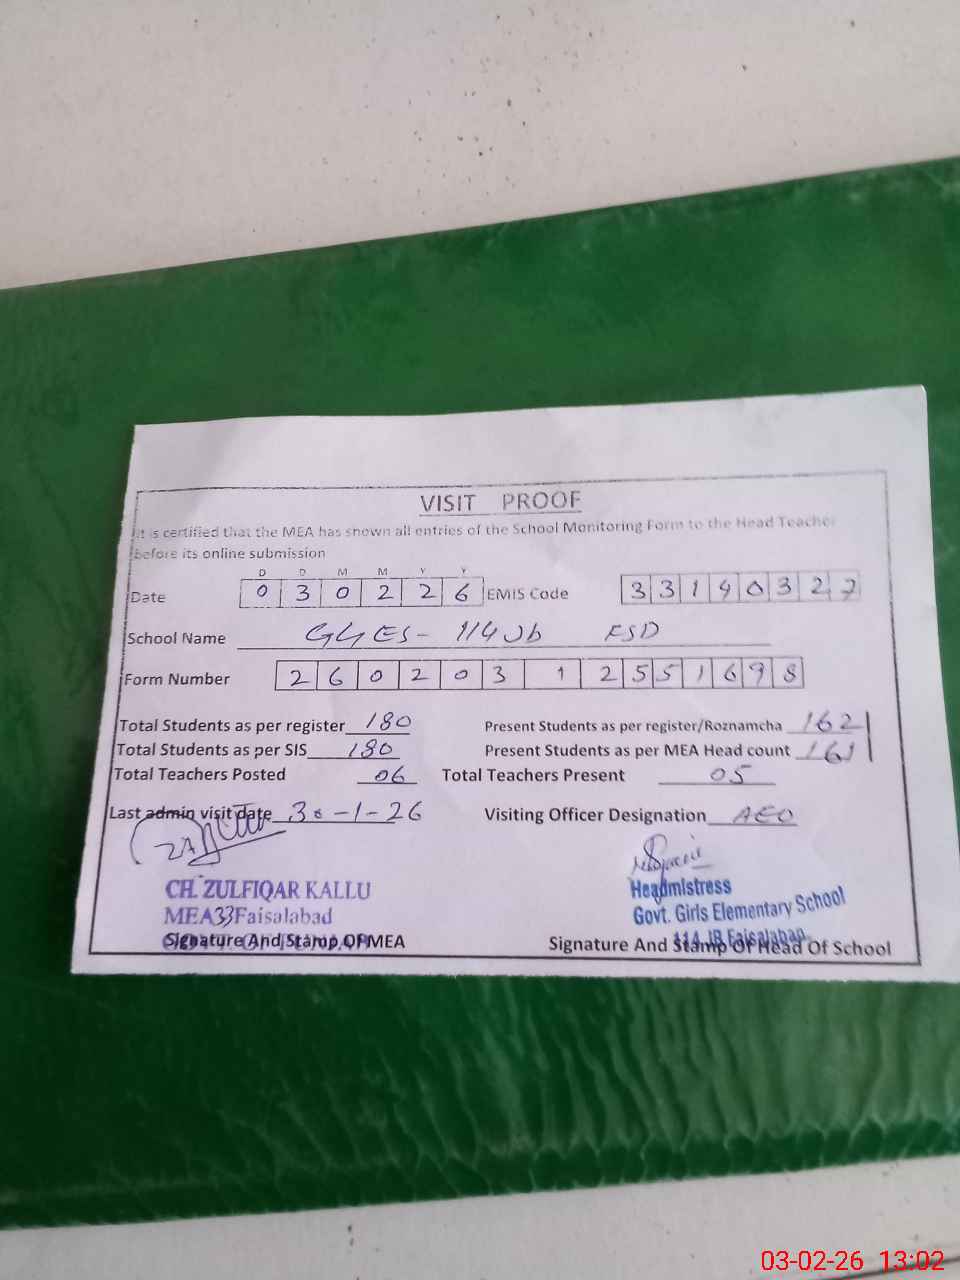 VISIT PROOF
It is certified that the MEA has shown all entries of the School Monitoring Form to the Head Teacher
before its online submission
D D M M Y Y
Date 0 3 0 2 2 6 EMIS Code 3 3 1 4 0 3 2 7
School Name GGES - 114 Jb FSD
Form Number 2 6 0 2 0 3 1 2 5 5 1 6 9 8
Total Students as per register 180 Present Students as per register/Roznamcha 162
Total Students as per SIS 180 Present Students as per MEA Head count 161
Total Teachers Posted 06 Total Teachers Present 05
Last admin visit date 30-1-26 Visiting Officer Designation AEO
CH. ZULFIQAR KALLU
MEA 33 Faisalabad
Headmistress
Govt. Girls Elementary School
114 JB Faisalabad
Signature And Stamp Of MEA Signature And Stamp Of Head Of School
03-02-26 13:02